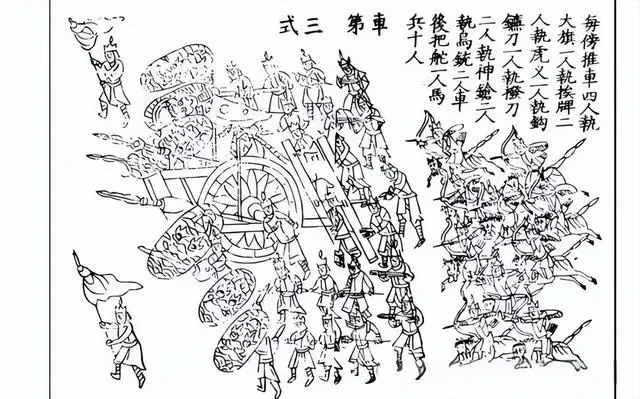 每傍推車四人執
大旗一人執挨牌二
人執虎义一人執鈎
鐮刀一人執撥刀
二人執神鎗二人
執鳥銃二人車
後把舵一人馬
兵十人
車第三式